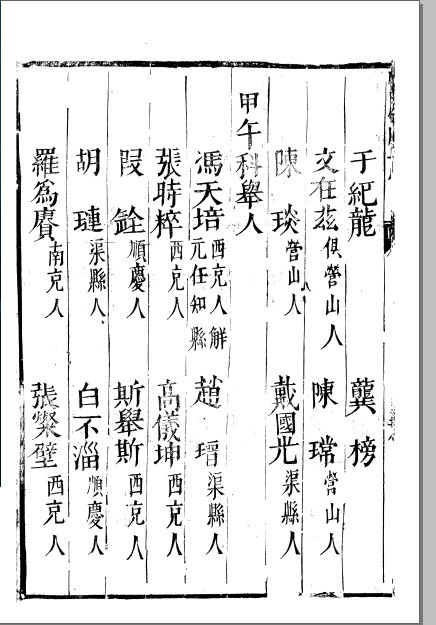 于紀龍 龔榜
文在茲俱營山人 陳瑺營山人
陳琰營山人 戴國光渠縣人
甲午科舉人
馮天培西充人解元任知縣 趙瑨渠縣人
張時梓西充人 高儀坤西充人
段銓順慶人 斯舉斯西充人
胡璉渠縣人 白不淄順慶人
羅為賡南充人 張璧西充人